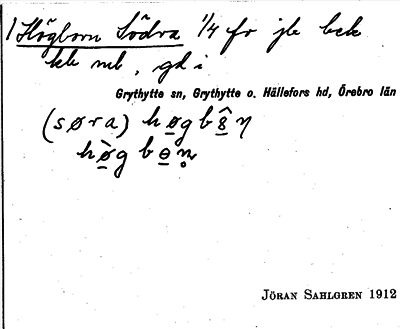 1 Högborn Södra 1/4 fr jb bek
kb mb, gd i
Grythytte sn, Grythytte o. Hällefors hd, Örebro län
(søra) høgbn
høg bɵn̥
JÖRAN SAHLGREN 1912